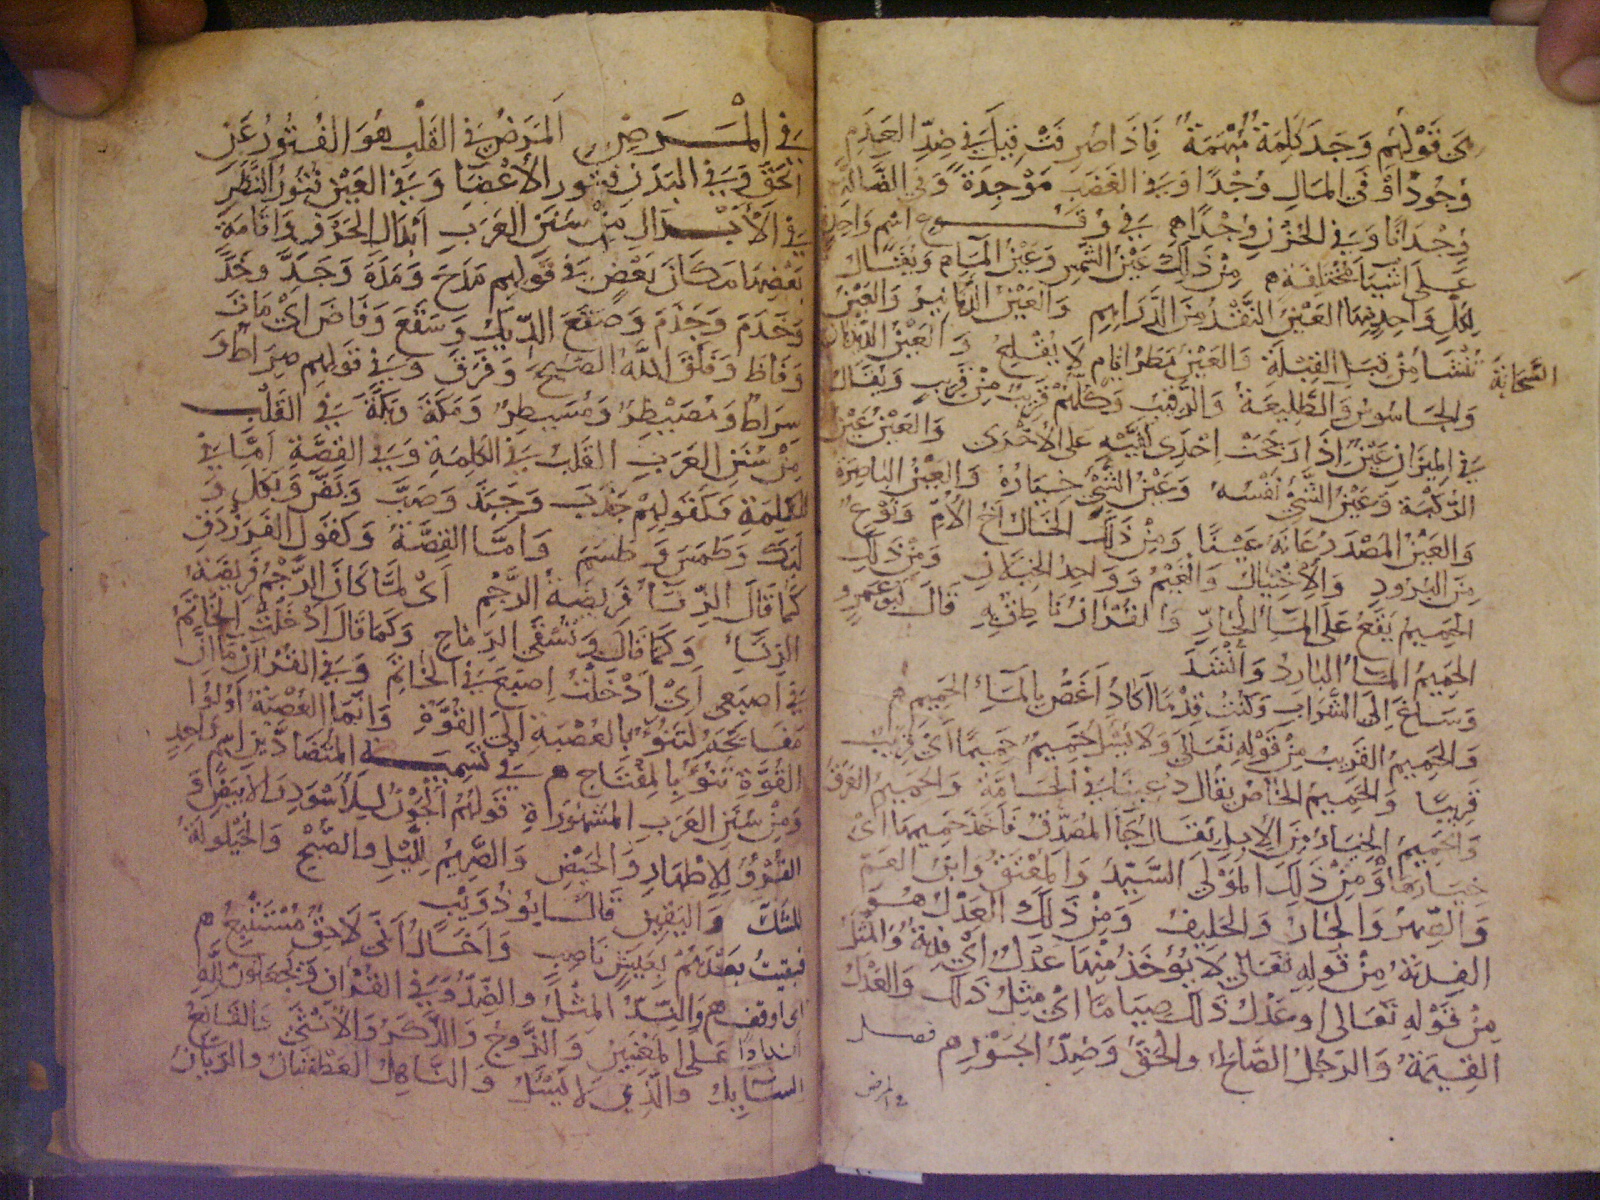 في قولهم وجد كلمة مبهمة فاذا صرفت قيل في ضد العدم
وجودًا و في المال وُجْدًا و في الغضب موجدة و في الضالة
وجدانا و في الحزن وجدًا في وقوع اسم واحد
على اشياء مختلفة من ذلك عين الشمس وعين الماء ويقال
لكل واحد منهما العين والعين النقد من الدراهم والعين الدنانير والعين
السحابة تنشأ من قبل القبلة والعين مطر ايام لا يقلع والعين الديدبان
والجاسوس والطليعة والرقيب وكلهم قريب من قريب ويقال
في الميزان عين اذا رجحت احدى كفتيه على الاخرى والعين عين
الركبة وعين الشيء نفسه وعين الشيء خياره والعين الباصرة
والعين المصدر عانه عينا ومن ذلك الخال اخ الام ونوع
من البرود والاختيال والغيم وواحد الخيلان ومن ذلك
الحميم يقع على الماء الحار والقرآن ناطق به قال ابو عمرو
الحميم الماء البارد وانشد
وساغ الى الشراب وكنت قدما اكاد اغص بالماء الحميم
والحميم القريب من قوله تعالى ولا يسئل حميم حميما اي قريب
قريبا والحميم الخاص يقال دعينا في الحامة والحميم العرق
والحميم الخيار من الابل يقال جاء المصدق فاخذ حميمها اي
خيارها ومن ذلك المولى السيد والمعتق وابن العم
والصهر والجار والحليف ومن ذلك العدل هو
الفدية من قوله تعالى لا يؤخذ منها عدل اي فدية والمثل
من قوله تعالى او عدل ذلك صياما اي مثل ذلك والعدل
القيمة والرجل الصالح والحق وضد الجور فصل
في المرض
في المرض المرض في القلب هو الفتور عن
الحق وفي البدن فتور الأعضا و في العين فتور النظر
في الأبدال من سنن العرب ابدال الحروف واقامة
بعضها مكان بعض في قولهم مدح ومده وجد وجذ
وخدم وجذم وصقع الديك وسقع وفاض اي مات
وفاظ وفلق الله الصبح وفرق وفي قولهم صراط و
سراط ومصيطر ومسيطر ومكة وبكة في القلب
من سنن العرب القلب في الكلمة وفي القصة اما في
الكلمة فكقولهم جذب وجبذ وضب وبض وبكل و
لبك وطمس وطسم واما القصة وكقول الفرزدق
كما قال الزناء فريضة الرجم اي لما كان الرجم فريضة
الزناء وكما قال وتشقى الرماح وكما قال ادخلت الخاتم
في اصبعي اي ادخلت اصبعي في الخاتم وفي القرآن ما ان
مفاتحه لتنوء بالعصبة اولى القوة وانما العصبة اولوا
القوة تنوء بالمفتاح في تسمية المتضادين باسم واحد
ومن سنن العرب المشهورة قولهم الجون للأسود والأبيض و
القروء للاطهار والحيض والصريم لليل والصبح والخيلولة
للشك واليقين قال ابو ذويب
فبقيت بعدهم بعيش ناصب واخال اني لاحق مستتبع
اي اوقن والند المثل والضد و في القرآن وتجعلون له
اندادا على المعنيين والزوج والذكر والأنثى والقانع
السايل والذي لا يسئل والناهل العطشان والريان